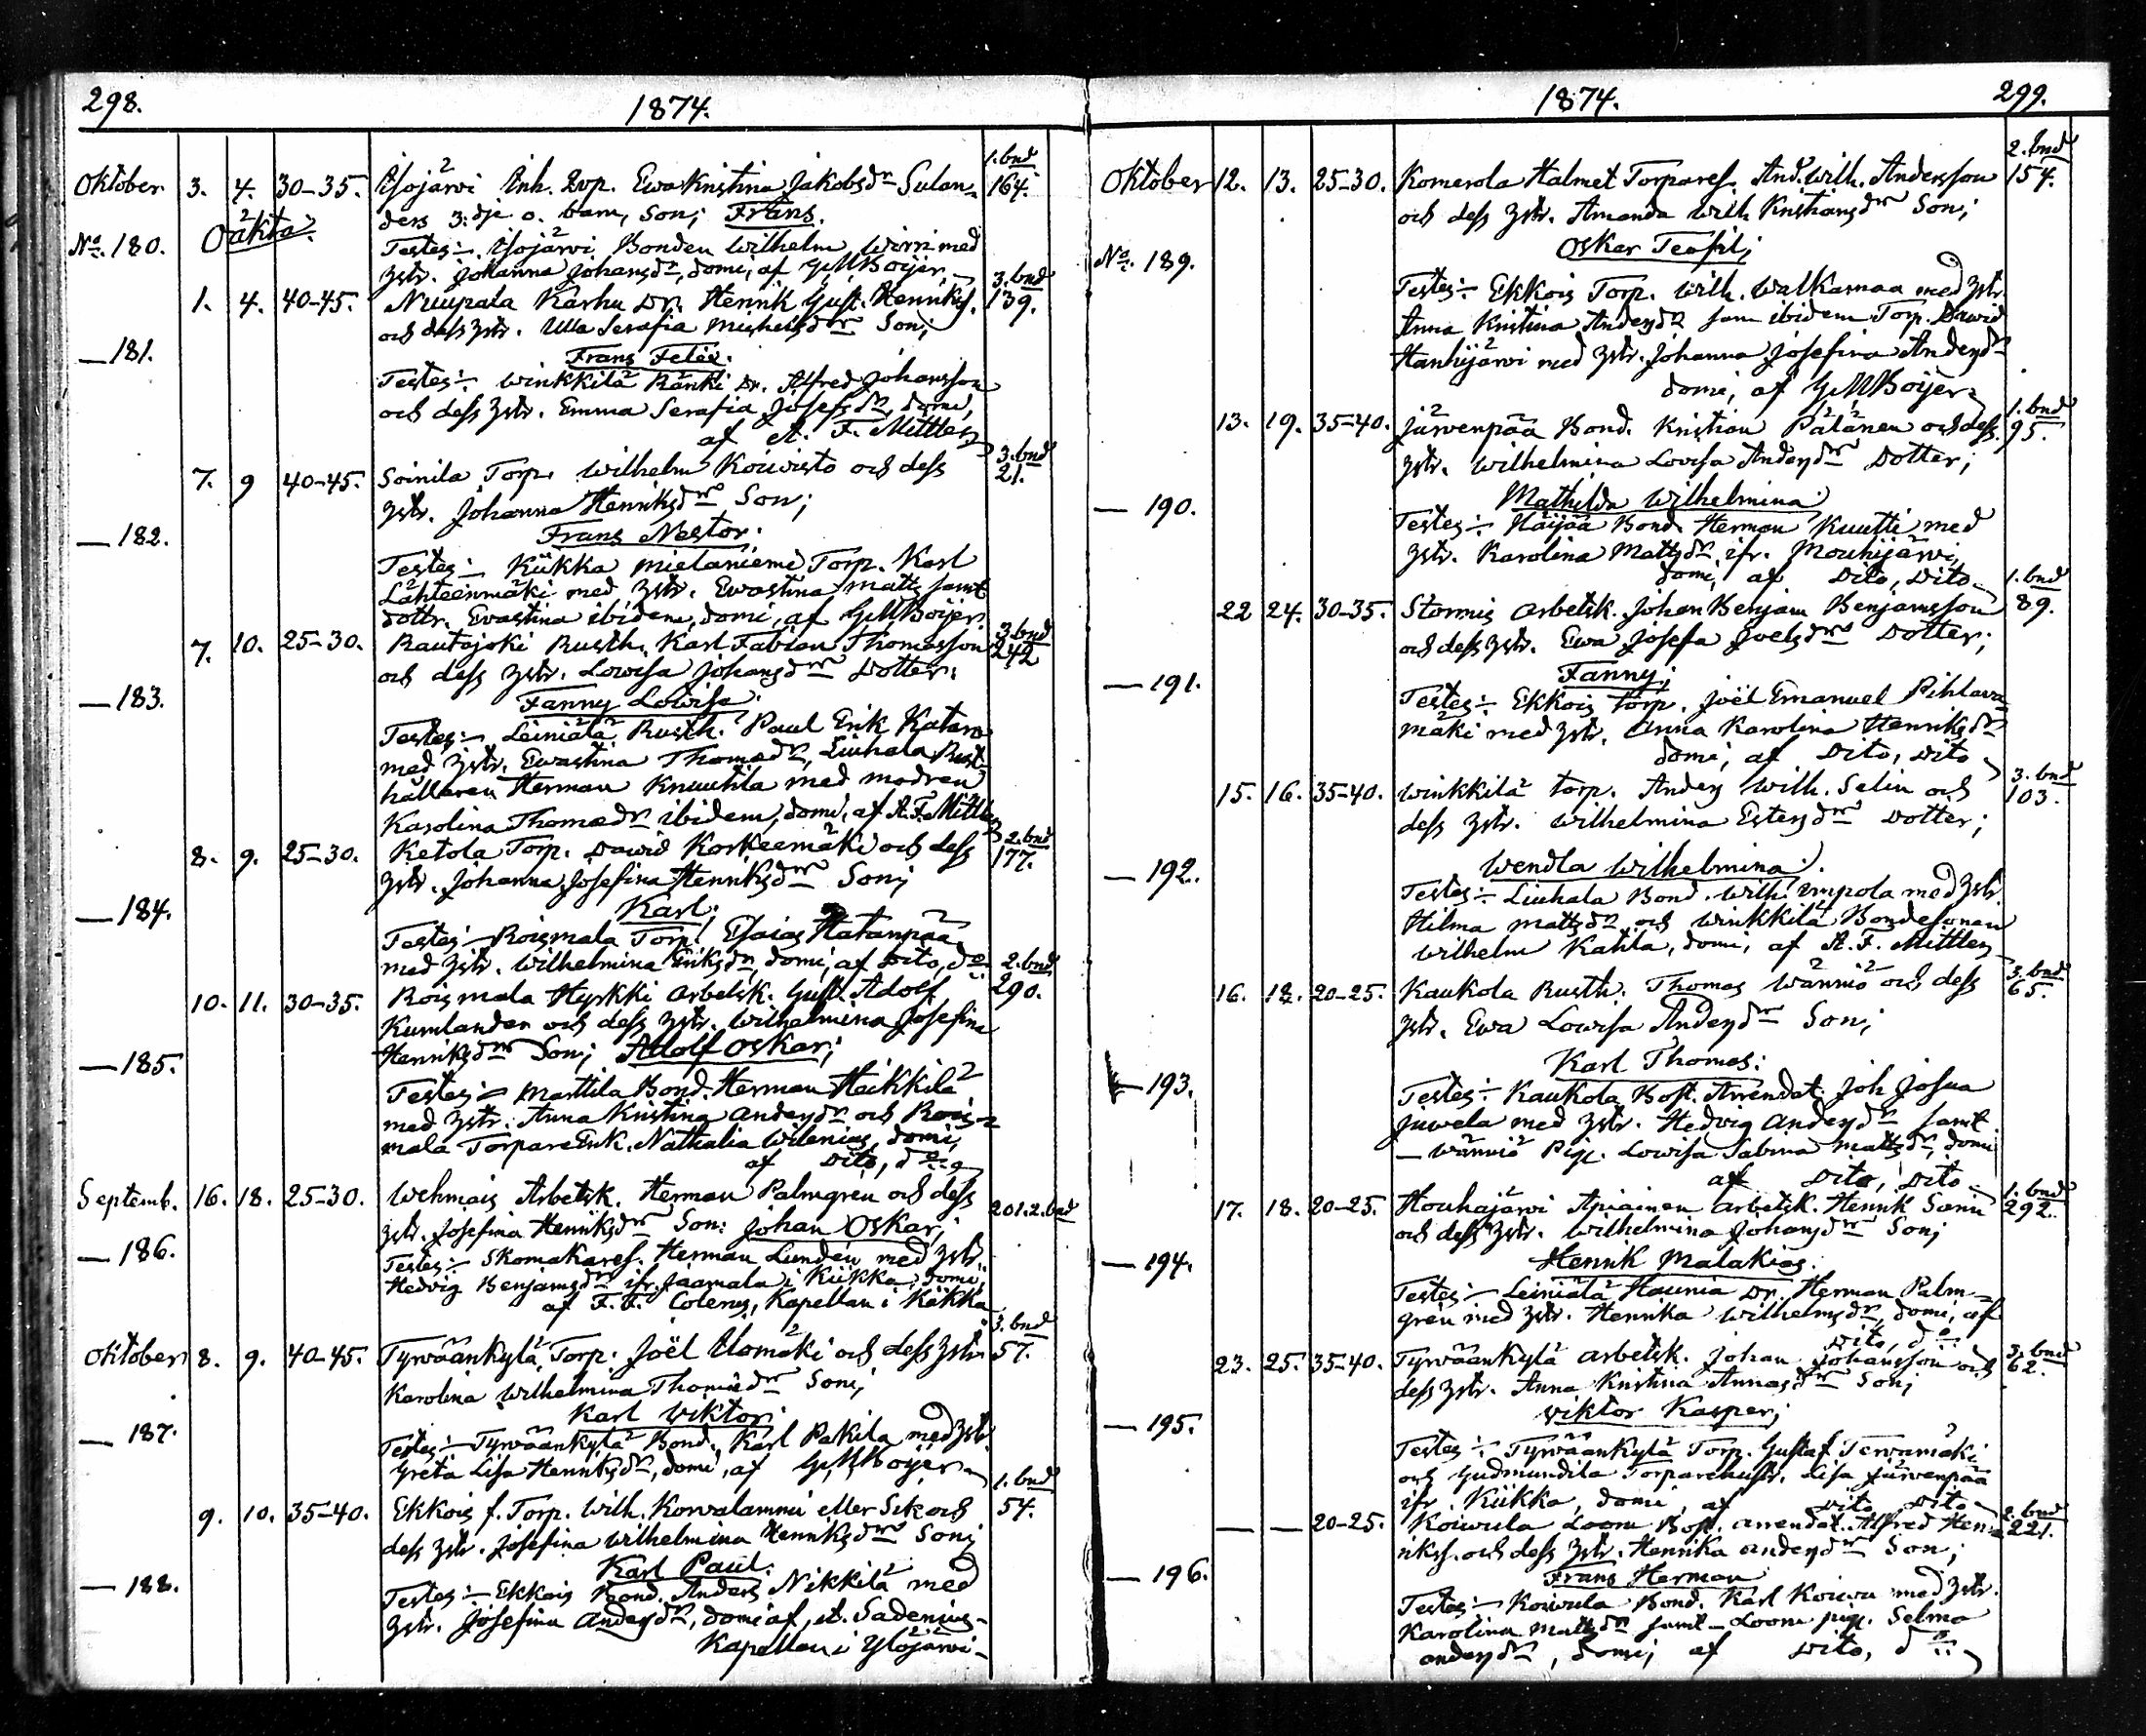 298.
1874.
1. bnd
Oktober 3. 4. 30–35. Isojärvi Inh. Qvp. Ewa Kristina Jakobsdr Sulan- 164.
ders 3:dje o. barn, Son; Frans.
Oäkta.
No. 180. Testes:– Isojärvi Bonden Wilhelm Wirri med
hstr. Johanna Johansdr, domi, af GMBoijer.
3. bnd
1. 4. 40–45. Nuupala Karhu Dr. Henrik Gust. Henrikss. 139.
och dess hstr. Ulla Serafia Michelsdr Son;
—181. Frans Felix.
Testes:– Winkkilä Ränki Dr. Alfred Johansson
och dess hstr. Emma Serafia Josefsdr, domi,
af A. F. Mittler
3. bnd
7. 9 40–45. Soinila Torp. Wilhelm Koiwisto och dess 21.
hstr. Johanna Henriksdr Son;
Frans Nestor.
—182.
Testes:– Kiikka Mielaniemi Torp. Karl
Lähteenmäki med hstr. Ewastina Matts samt
dottr. Evastina ibidem, domi, af GMBoijer.
3. bnd
7. 10. 25–30. Rautajoki Rusth. Karl Fabian Thomasson 242
och dess hstr. Lowisa Johansdr Dotter:
—183. Fanny Lowisa.
Testes:– Leiniälä Rusth. Paul Erik Katara
med hstr. Ewastina Thomædr, Liuhala Rust-
hållaren Herman Knuutila med modren
Karolina Thomædr ibidem, domi, af A. F. Mittler
2. bnd
8. 9. 25–30. Ketola Torp. Dawid Koskeemäki och dess 177.
hstr. Johanna Josefina Henriksdr Son;
—184. Karl;
Testes:– Roismala Torp. Esaias Hatanpää
med hstr. Wilhelmina Eriksdr, domi, af Dito, do.
2. bnd
10. 11. 30–35. Roismala Hyrkki Arbetsk. Gust. Adolf 290.
Kumlander och dess hstr. Wilhelmina Josefina
Henriksdr Son; Adolf Oskar;
—185.
Testes:– Marttila Bond. Herman Heikkilä
med hstr. Anna Kristina Andersdr och Rois-
mala Torpare Enk. Nathalia Wilenius, domi,
af Dito, do.
Septemb. 16. 18. 25–30. Wehmais Arbetsk. Herman Palmgren och dess 201. 2. bnd
hstr. Josefina Henriksdr Son: Johan Oskar;
—186.
Testes:– Skomakares. Herman Lundén med hstr.
Hedvig Benjamsdr ifr. Jaamala i Kiikka, domi,
af F. F. Colerus, Kapellan i Kiikka
3. bnd
Oktober 8. 9. 40–45. Tyrväänkylä Torp. Joël Ulomäki och dess hstr 57.
Karolina Wilhelmina Thomædr Son;
Karl Wiktor;
—187.
Testes:– Tyrväänkylä Bond. Karl Pakila med hstr.
Greta Lisa Henriksdr, domi, af GMBoijer
1. bnd
9. 10. 35–40. Ekkois f. Torp. Wilh. Korvalammi eller Sik och 54.
dess hstr. Josefina Wilhelmina Henriksdr Son;
Karl Paul.
—188.
Testes:– Ekkois Bond. Anders Nikkilä med
hstr. Josefina Andersdr, domi af, A. Sadenius
Kapellan i Ylöjärvi–
1874.
299.
2. bnd
Oktober 12. 13. 25–30. Komerola Halmet Torpares. And. Wilh. Andersson 154.
och dess hstr. Amanda Wilh Kristiansdr Son;
Oskar Teofil;
No. 189.
Testes:– Ekkois Torp. Wilh. Walkamaa med hstr.
Anna Kristina Andersdr sam ibidem Torp. Dawid
Hanhijärvi med hstr. Johanna Josefina Andersdr
domi, af GMBoijer
1. bnd
13. 19. 35–40. Järvenpää Bond. Kristian Pälänen och dess 95.
hstr. Wilhelmina Lovisa Andersdr Dotter;
Mathilda Wilhelmina.
—190.
Testes:– Häijää Bond. Herman Kuutti med
hstr. Karolina Mattsdr ifr. Mouhijärvi,
domi, af Dito, Dito
1. bnd
22 24. 30–35. Stormis Arbetsk. Johan Benjam Benjamsson 89.
och dess hstr. Ewa Josefa Joelsdr Dotter;
Fanny;
—191.
Testes:– Ekkois Torp. Joël Emanuel Pihlava-
mäki med hstr. Anna Karolina Henriksdr
domi, af Dito, Dito
3. bnd
15. 16. 35–40. Winkkilä Torp. Anders Wilh. Selin och 103.
dess hstr. Wilhelmina Estersdr Dotter;
Wendla Wilhelmina.
—192.
Testes:– Liuhala Bond. Wilh. Ympola med hstr.
Hilma Mattsdr och Winkkilä Bondesonen
Wilhelm Kahla, domi, af A. F. Mittler
3. bnd
16. 18. 20–25. Kaukola Rusth. Thomas Wänniö och dess 65.
hstr. Ewa Lowisa Andersdr Son;
Karl Thomas:
—193.
Testes:– Kaukola Bost. Arrendat. Joh Josua
Juwela med hstr. Hedvig Andersdr samt
– Wänniö Pig. Lowisa Sabina Mattsdr, domi
af Dito, Dito
1. bnd
17. 18. 20–25. Houhajärvi Apiainen Arbetsk. Henrik Sanii 292.
och dess hstr. Wilhelmina Johansdr Son;
Henrik Malakias.
—194.
Testes:– Leiniälä Haunia Dr. Herman Palm-
grén med hstr. Henrika Wilhelmsdr, domi, af
Dito, do.
3. bnd
23. 25. 35–40. Tyrväänkylä Arbetsk. Johan Johansson och 62.
dess hstr. Anna Kristina Annasdr Son;
Viktor Kasper;
—195.
Testes:– Tyrväänkylä Torp. Gustaf Tervamäki
och Gudmundila Torparehustr. Lisa Järvenpää
ifr. Kiikka, domi, af Dito Dito
2. bnd
— — 20–25. Koiwula Loom Bost. arrendat. Alfred Hen- 221.
rikss. och dess hstr. Henrika Andersdr Son;
Frans Herman
—196.
Testes:– Koiwula Bond. Karl Koiwu med hstr.
Karolina Mattsdr samt – Loom pig. Selma
Andersdr, domi; af Dito, do.